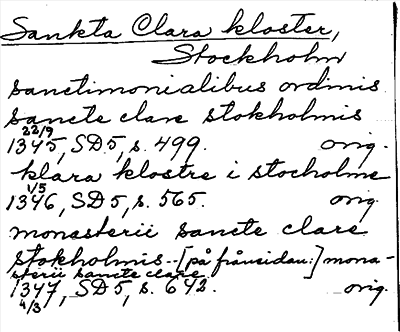 Sankta Clara kloster,
Stockholm
sanctimonialibus ordinis
sancte clare stokholmis
22/9
1345, SD5, s. 499. orig.
klara klostre i stocholme
1/5
1346, SD5, s. 565. orig.
monasterii sancte clare
stokholmis--[på frånsidan:] mona-
sterii sancte clare
1347, SD5, s. 642. orig.
4/3